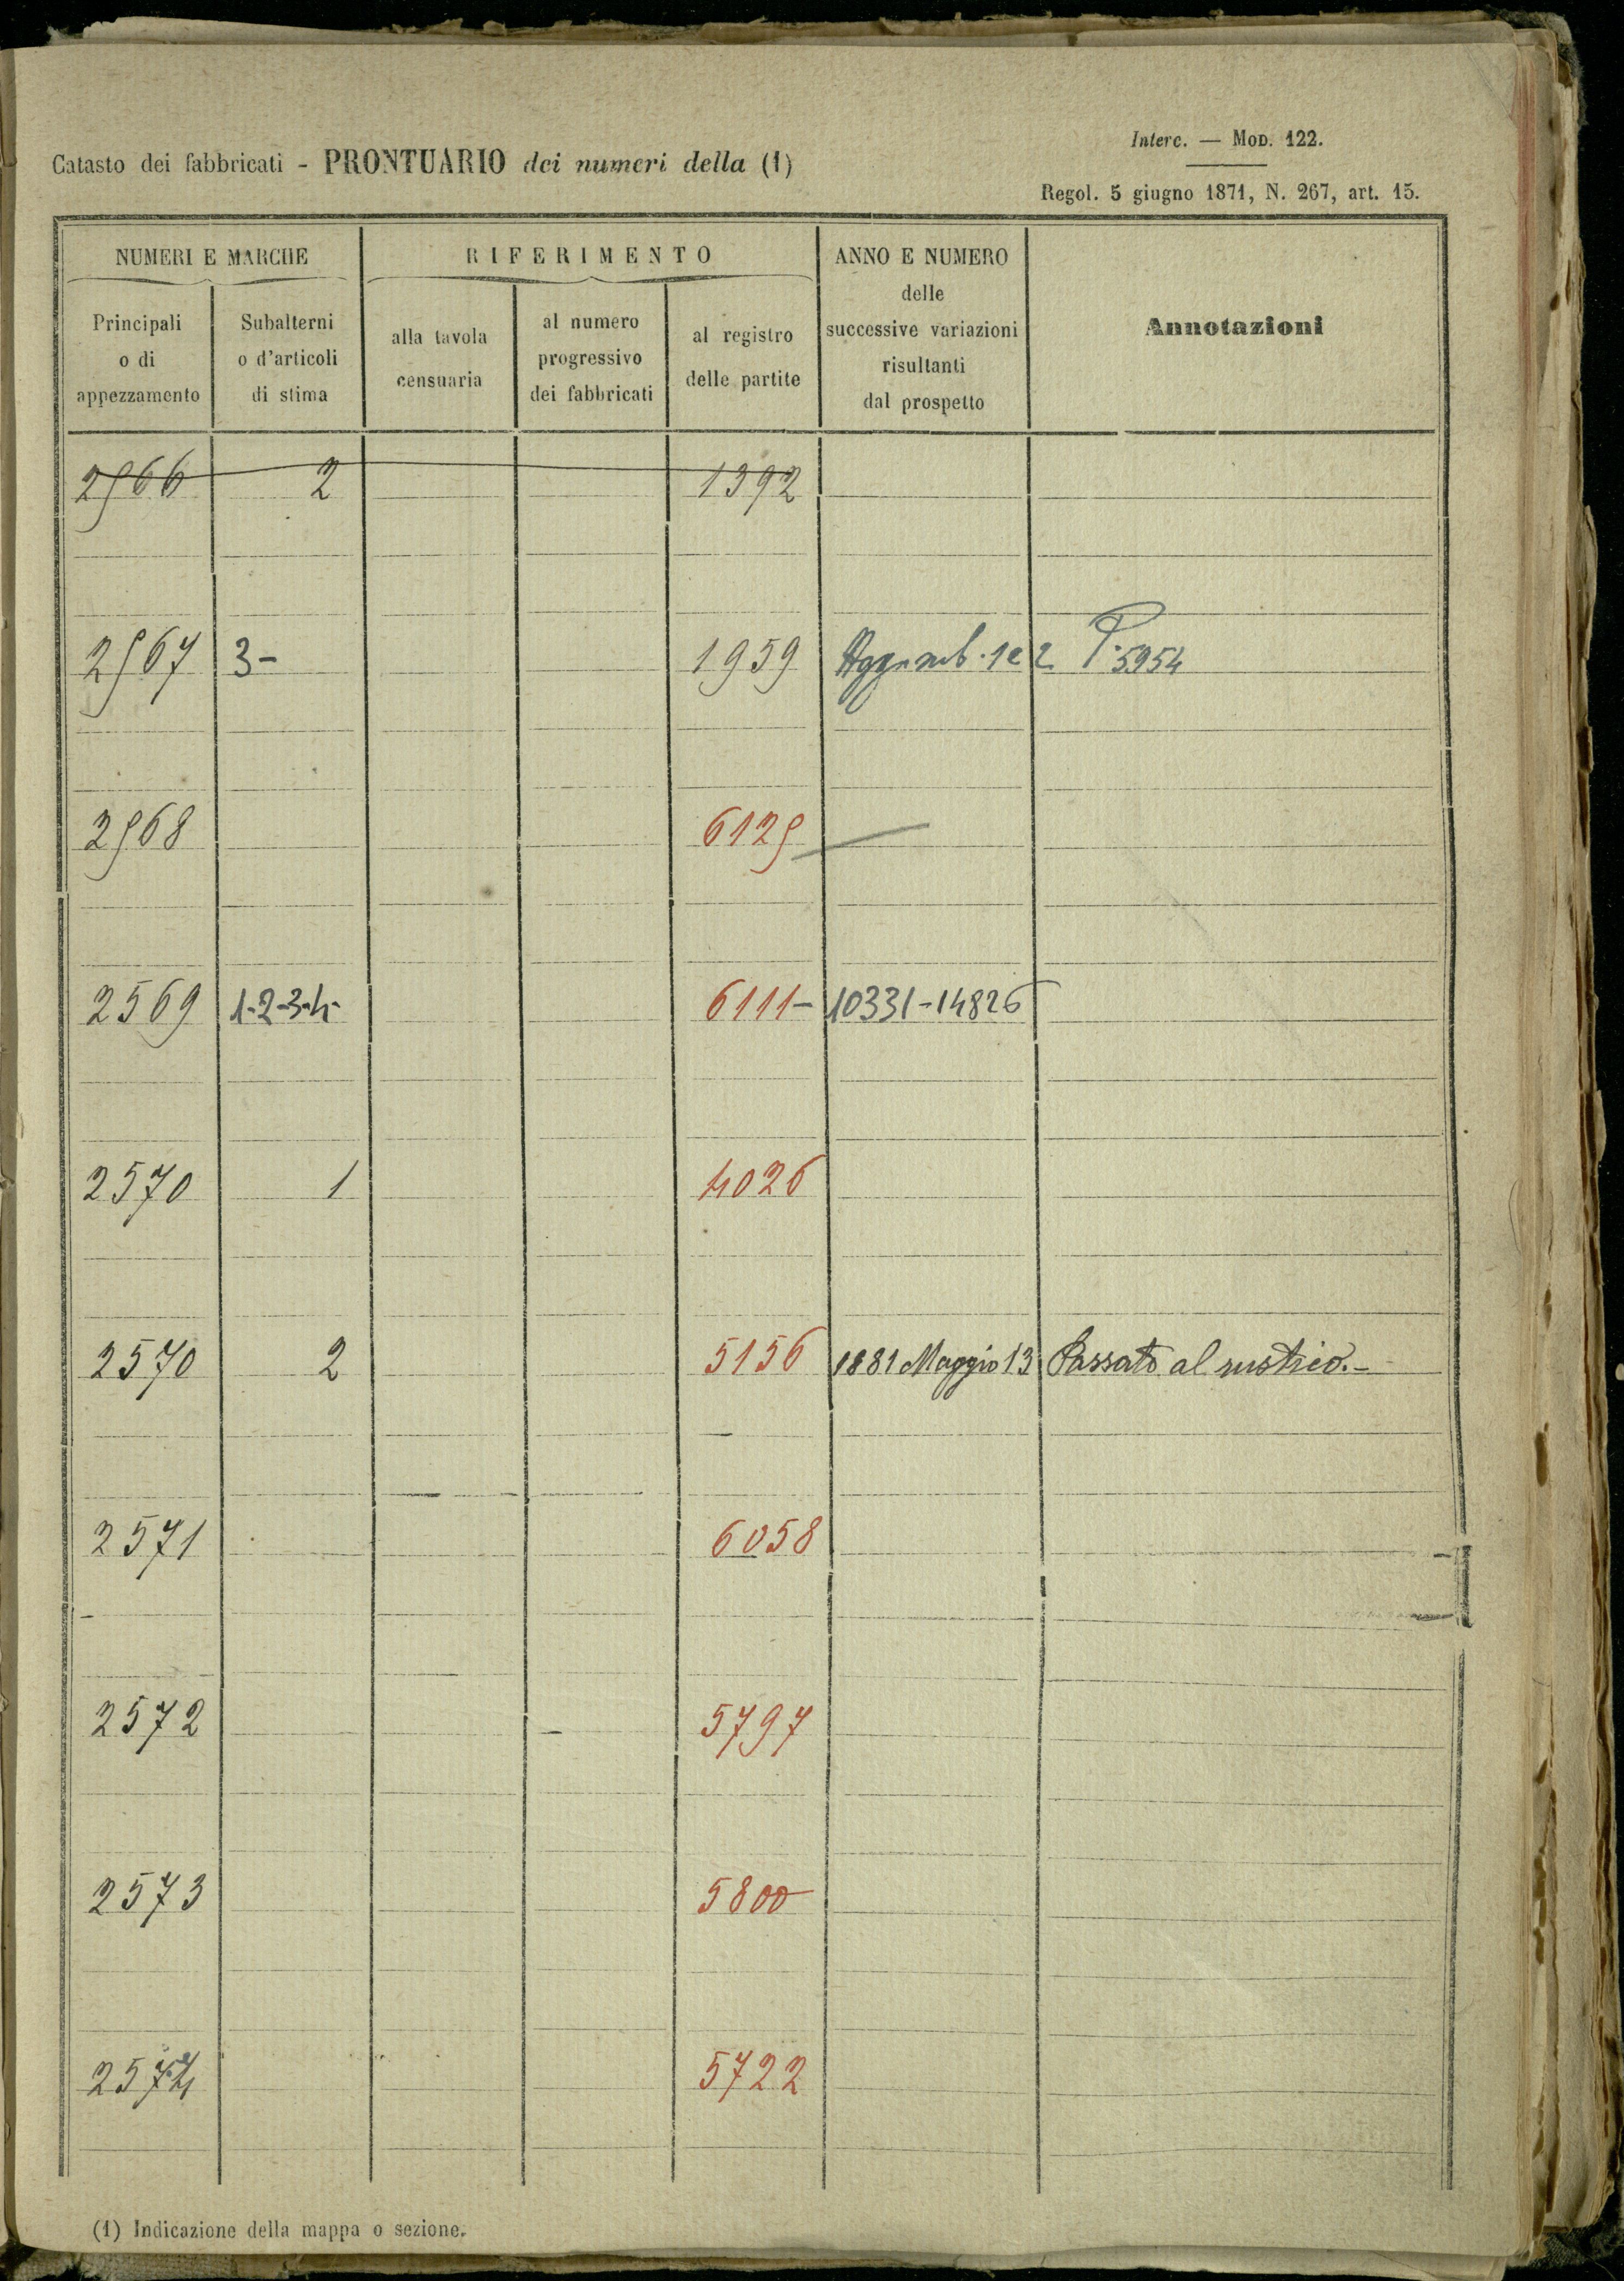 Interc. — MOD. 122.
Catasto dei fabbricati - PRONTUARIO dei numeri della (1)
Regol. 5 giugno 1871, N. 267, art. 15.
NUMERI E MARCHE
Principali
o di
appezzamento
Subalterni
o d'articoli
di stima
RIFERIMENTO
alla tavola
censuaria
al numero
progressivo
dei fabbricati
al registro
delle partite
ANNO E NUMERO
delle
successive variazioni
risultanti
dal prospetto
Annotazioni
2566 2 1392
2567 3- 1959 1 e 2 P. 5954
2568 6125
2569 1-2-3-4- 6111- 10331-14826
2570 1 4026
2570 2 5156 1881 Maggio 13 Passato al rustico.-
2571 6058
2572 5797
2573 5800
2574 5722
(1) Indicazione della mappa o sezione.